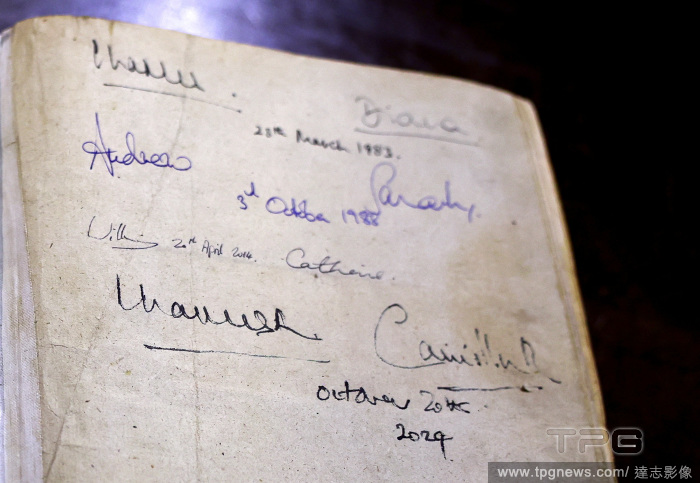 Charles Diana
28th March 1983.
Andrew Sarah.
3rd October 1988
William 20th April 2014. Catherine.
Charles R Camilla R
October 20th
2024
TPG
www.tpgnews.com/ 達志影像